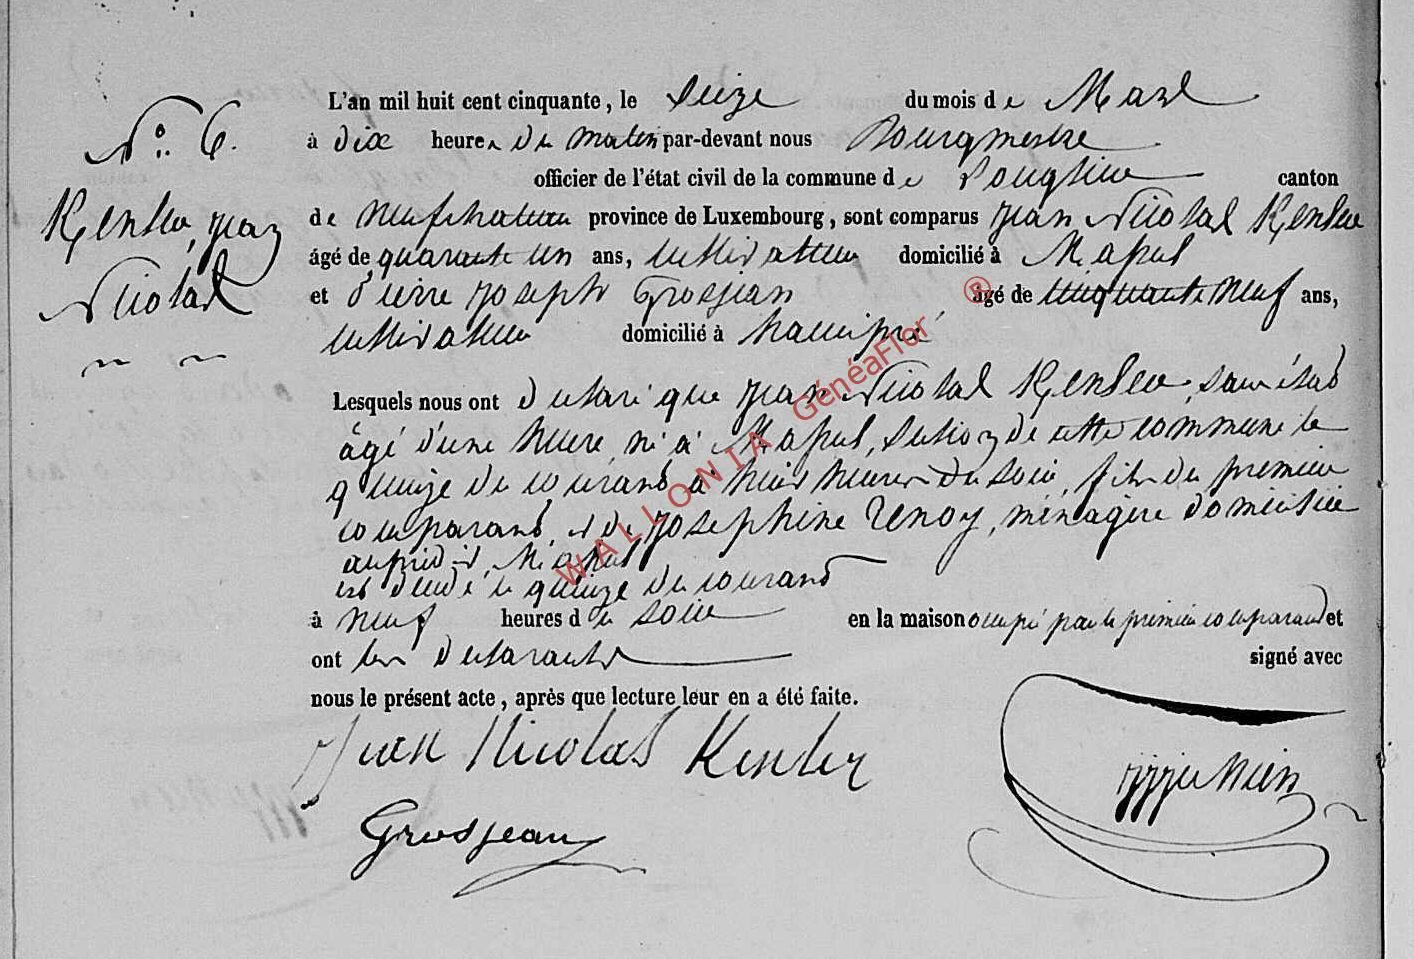 L'an mil huit cent cinquante, le Seize du mois de Mars
N.º 6.
à dix heures du matin par-devant nous Bourgmestre
officier de l'état civil de la commune de canton
Kensler, jean
de neufchateau province de Luxembourg, sont comparus jean Nicolas Kensler
âgé de quarante un ans, cultivateur domicilié à
Nicolas
et Pierre joseph Grosjean âgé de cinquante neuf ans,
cultivateur domicilié à hamipré
Lesquels nous ont déclaré que jean Nicolas Kensler, sans état
âgé d'une heure, né à section de cette commune le
quinze du courant à huit heures du soir, fils du premier
comparant, et de josephine Renoy, ménagère domiciliée
audit
est décédé le quinze du courant
à neuf heures du soir en la maison occupé par le premier comparant et
ont les déclarants signé avec
nous le présent acte, après que lecture leur en a été faite.
Jean Nicolas Kensler
Grosjean
WALLONIA GénéaFlor ®